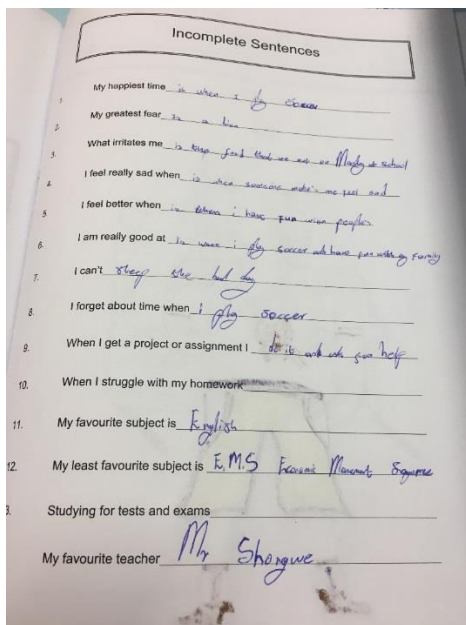 Incomplete Sentences
1. My happiest time is when I play soccer
2. My greatest fear is a lion
3. What irritates me is food that we eat on Monday at school
4. I feel really sad when is when someone make's me feel sad
5. I feel better when is when i have fun with people
6. I am really good at is when i play soccer and have fun with my family
7. I can't sleep the hol day
8. I forget about time when i play soccer
9. When I get a project or assignment I do it and ask for help
10. When I struggle with my homework
11. My favourite subject is English
12. My least favourite subject is E.M.S Economic
3. Studying for tests and exams
My favourite teacher Mr Shongwe